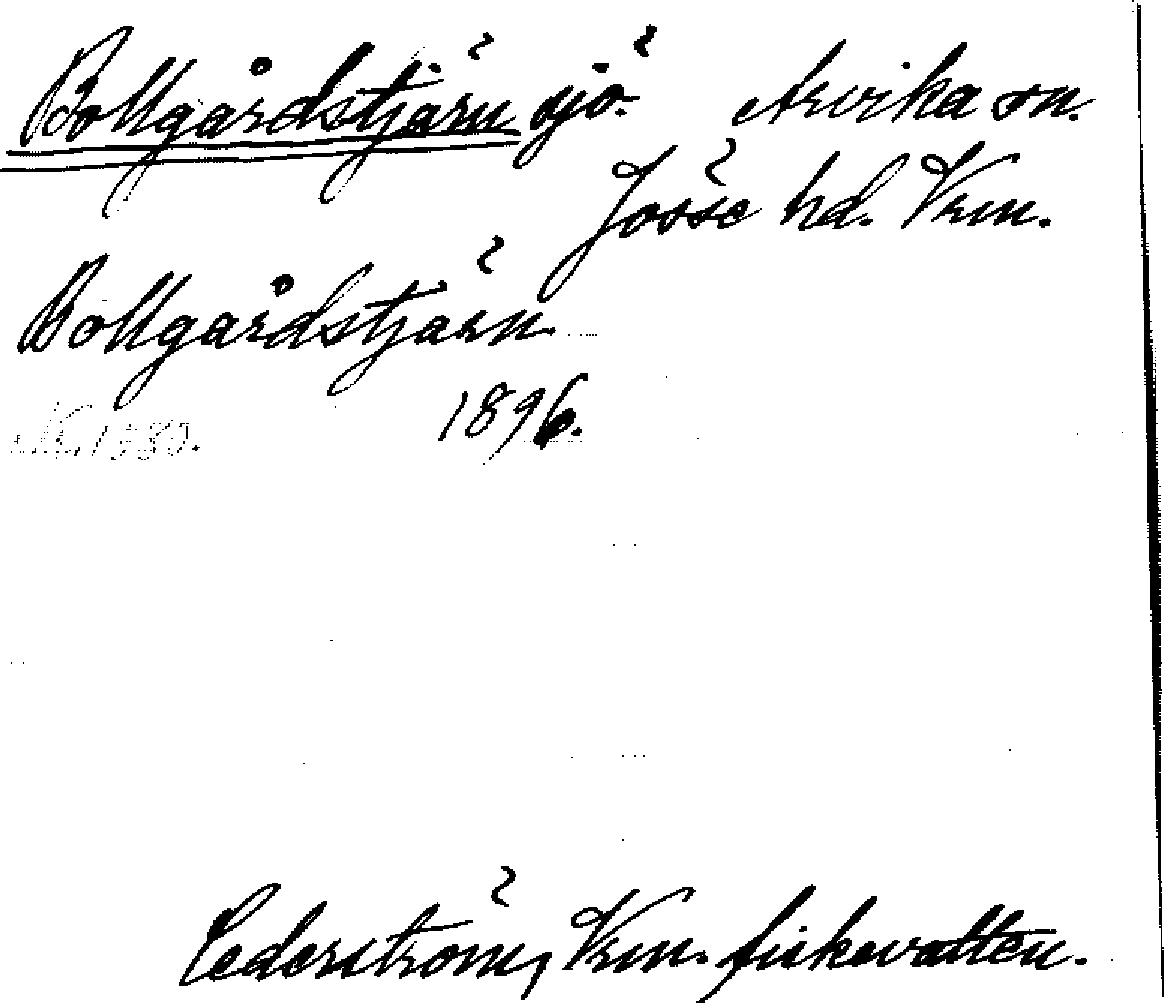 Bollgårdstjärn sjö. Arvika sn.
Jösse hd. Vrm.
Bollgårdstjärn
1896.
Cederström, Vrm. fiskevatten.